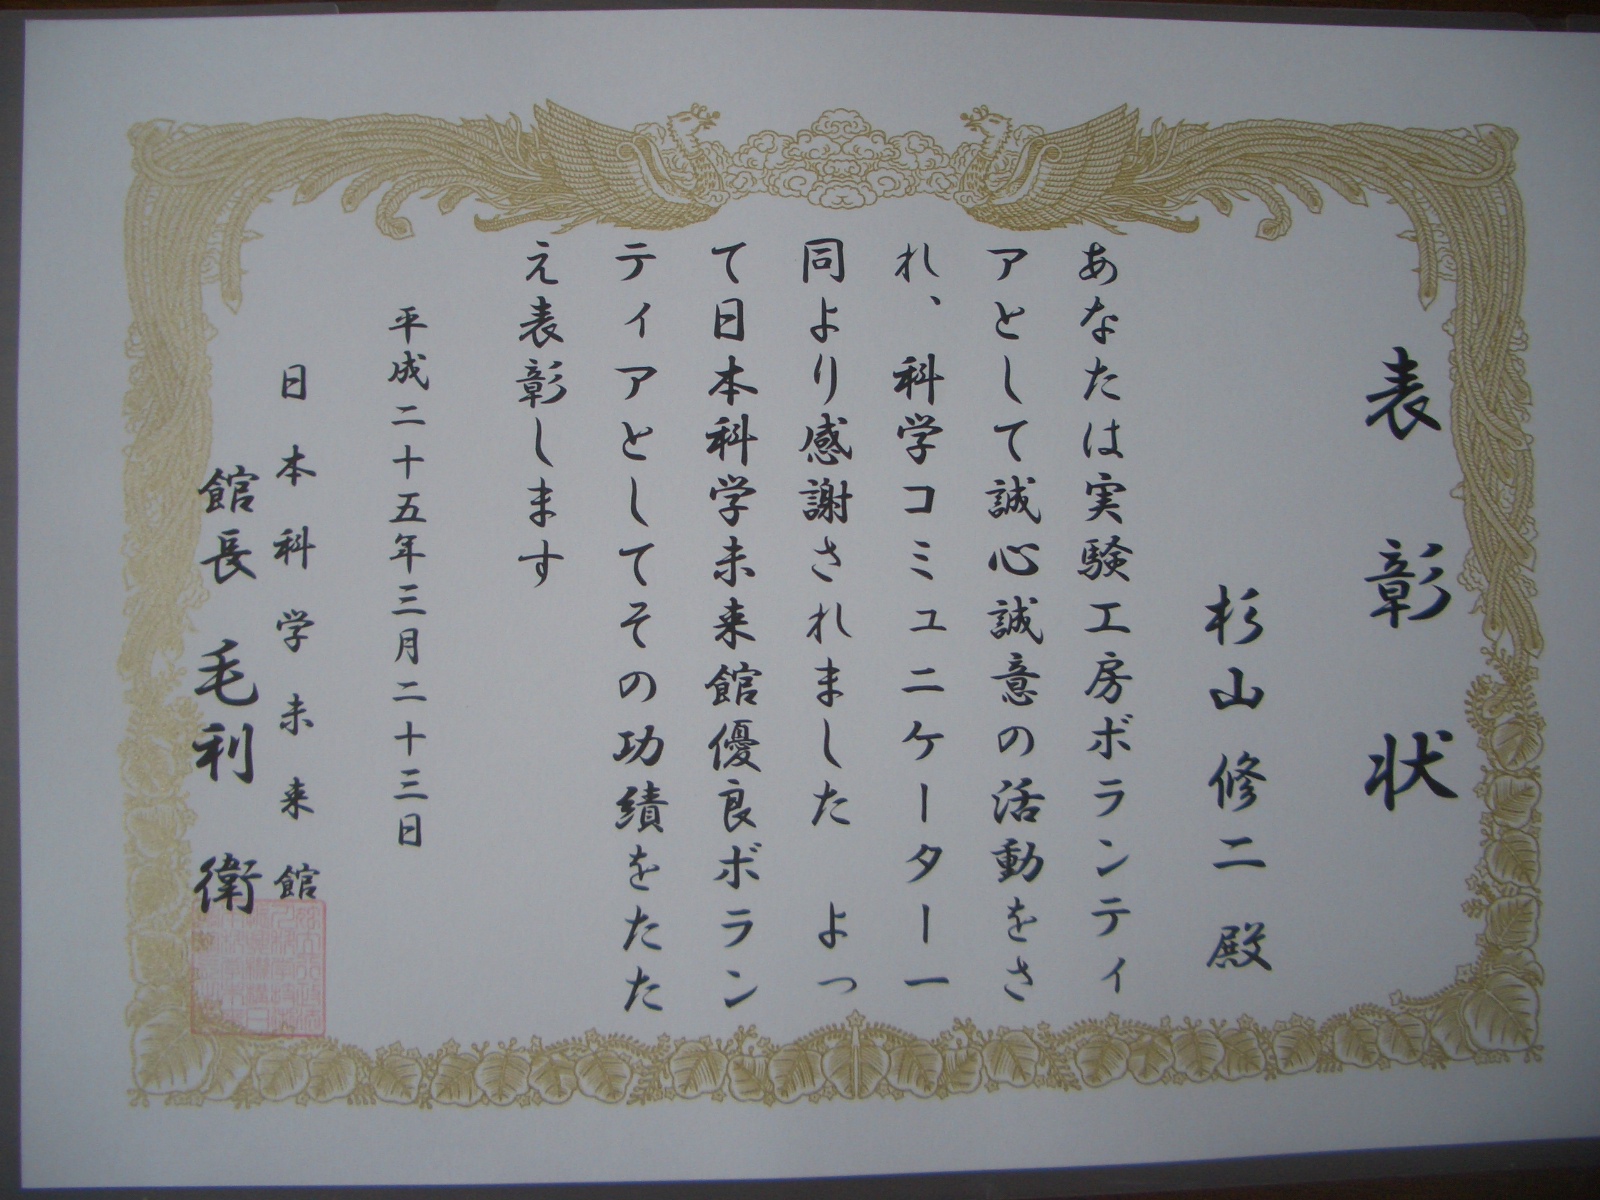 表彰状
杉山修二殿
あなたは実験工房ボランティ
アとして誠心誠意の活動をさ
れ、科学コミュニケーター一
同より感謝されました よっ
て日本科学未来館優良ボラン
ティアとしてその功績をたた
え表彰します
平成二十五年三月二十三日
日本科学未来館
館長 毛利 衛